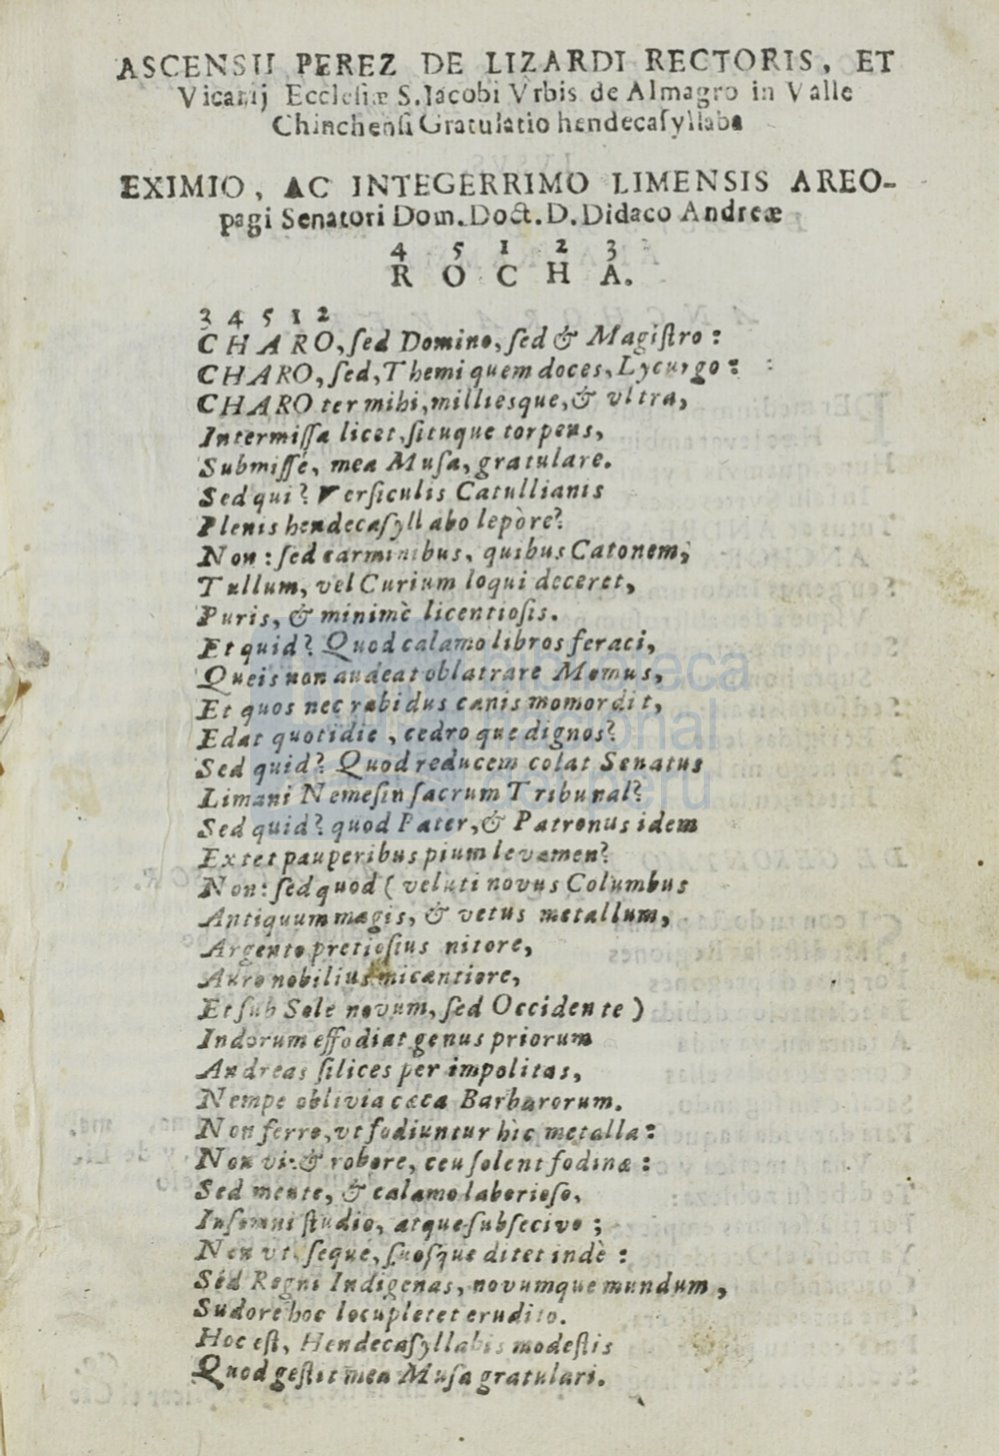 ASCENSII PEREZ DE LIZARDI RECTORIS, ET
Vicarij Ecclesiæ S. Iacobi Vrbis de Almagro in Valle
Chinchensi Gratulatio hendecasyllaba
EXIMIO, AC INTEGERRIMO LIMENSIS AREO-
pagi Senatori Dom. Doct. D. Didaco Andreæ
4 5 1 2 3
R O C H A.
3 4 5 1 2
CHARO, ſed Domino, ſed & Magiſtro:
CHARO, ſed, Themi quem doces, Lycurgo:
CHARO ter mihi, millieſque, & vltra,
Intermiſſa licet, ſituque torpens,
Submiſſé, mea Muſa, gratulare.
Sed qui? Verſiculis Catullianis
Plenis hendecaſyllabo lepòre?
Non: ſed carminibus, quibus Catonem,
Tullum, vel Curium loqui deceret,
Puris, & minimè licentioſis.
Et quid? Quod calamo libros feraci,
Queis non audeat oblatrare Momus,
Et quos nec rabidus canis momordit,
Edat quotidie, cedro que dignos?
Sed quid? Quod reducem colat Senatus
Limani Nemeſin ſacrum Tribunal?
Sed quid? quod Pater, & Patronus idem
Extet pauperibus pium levamen?
Non: ſed quod (veluti novus Columbus
Antiquum magis, & vetus metallum,
Argento pretioſius nitore,
Auro nobilius micantiore,
Et ſub Sole novum, ſed Occidente)
Indorum effodiat genus priorum
Andreas ſilices per impolitas,
Nempe oblivia cæca Barbarorum.
Non ferro, vt fodiuntur hìc metalla:
Non vi & robore, ceu ſolent fodinæ:
Sed mente, & calamo laborioſo,
Inſomni ſtudio, atque ſubſecivo;
Non vt ſeque, ſuoſque ditet indè:
Séd Regni Indigenas, novumque mundum,
Sudore hoc locupletet erudito.
Hoc eſt, Hendecaſyllabis modeſtis
Quod geſtit mea Muſa gratulari.
biblioteca
nacional
del perú